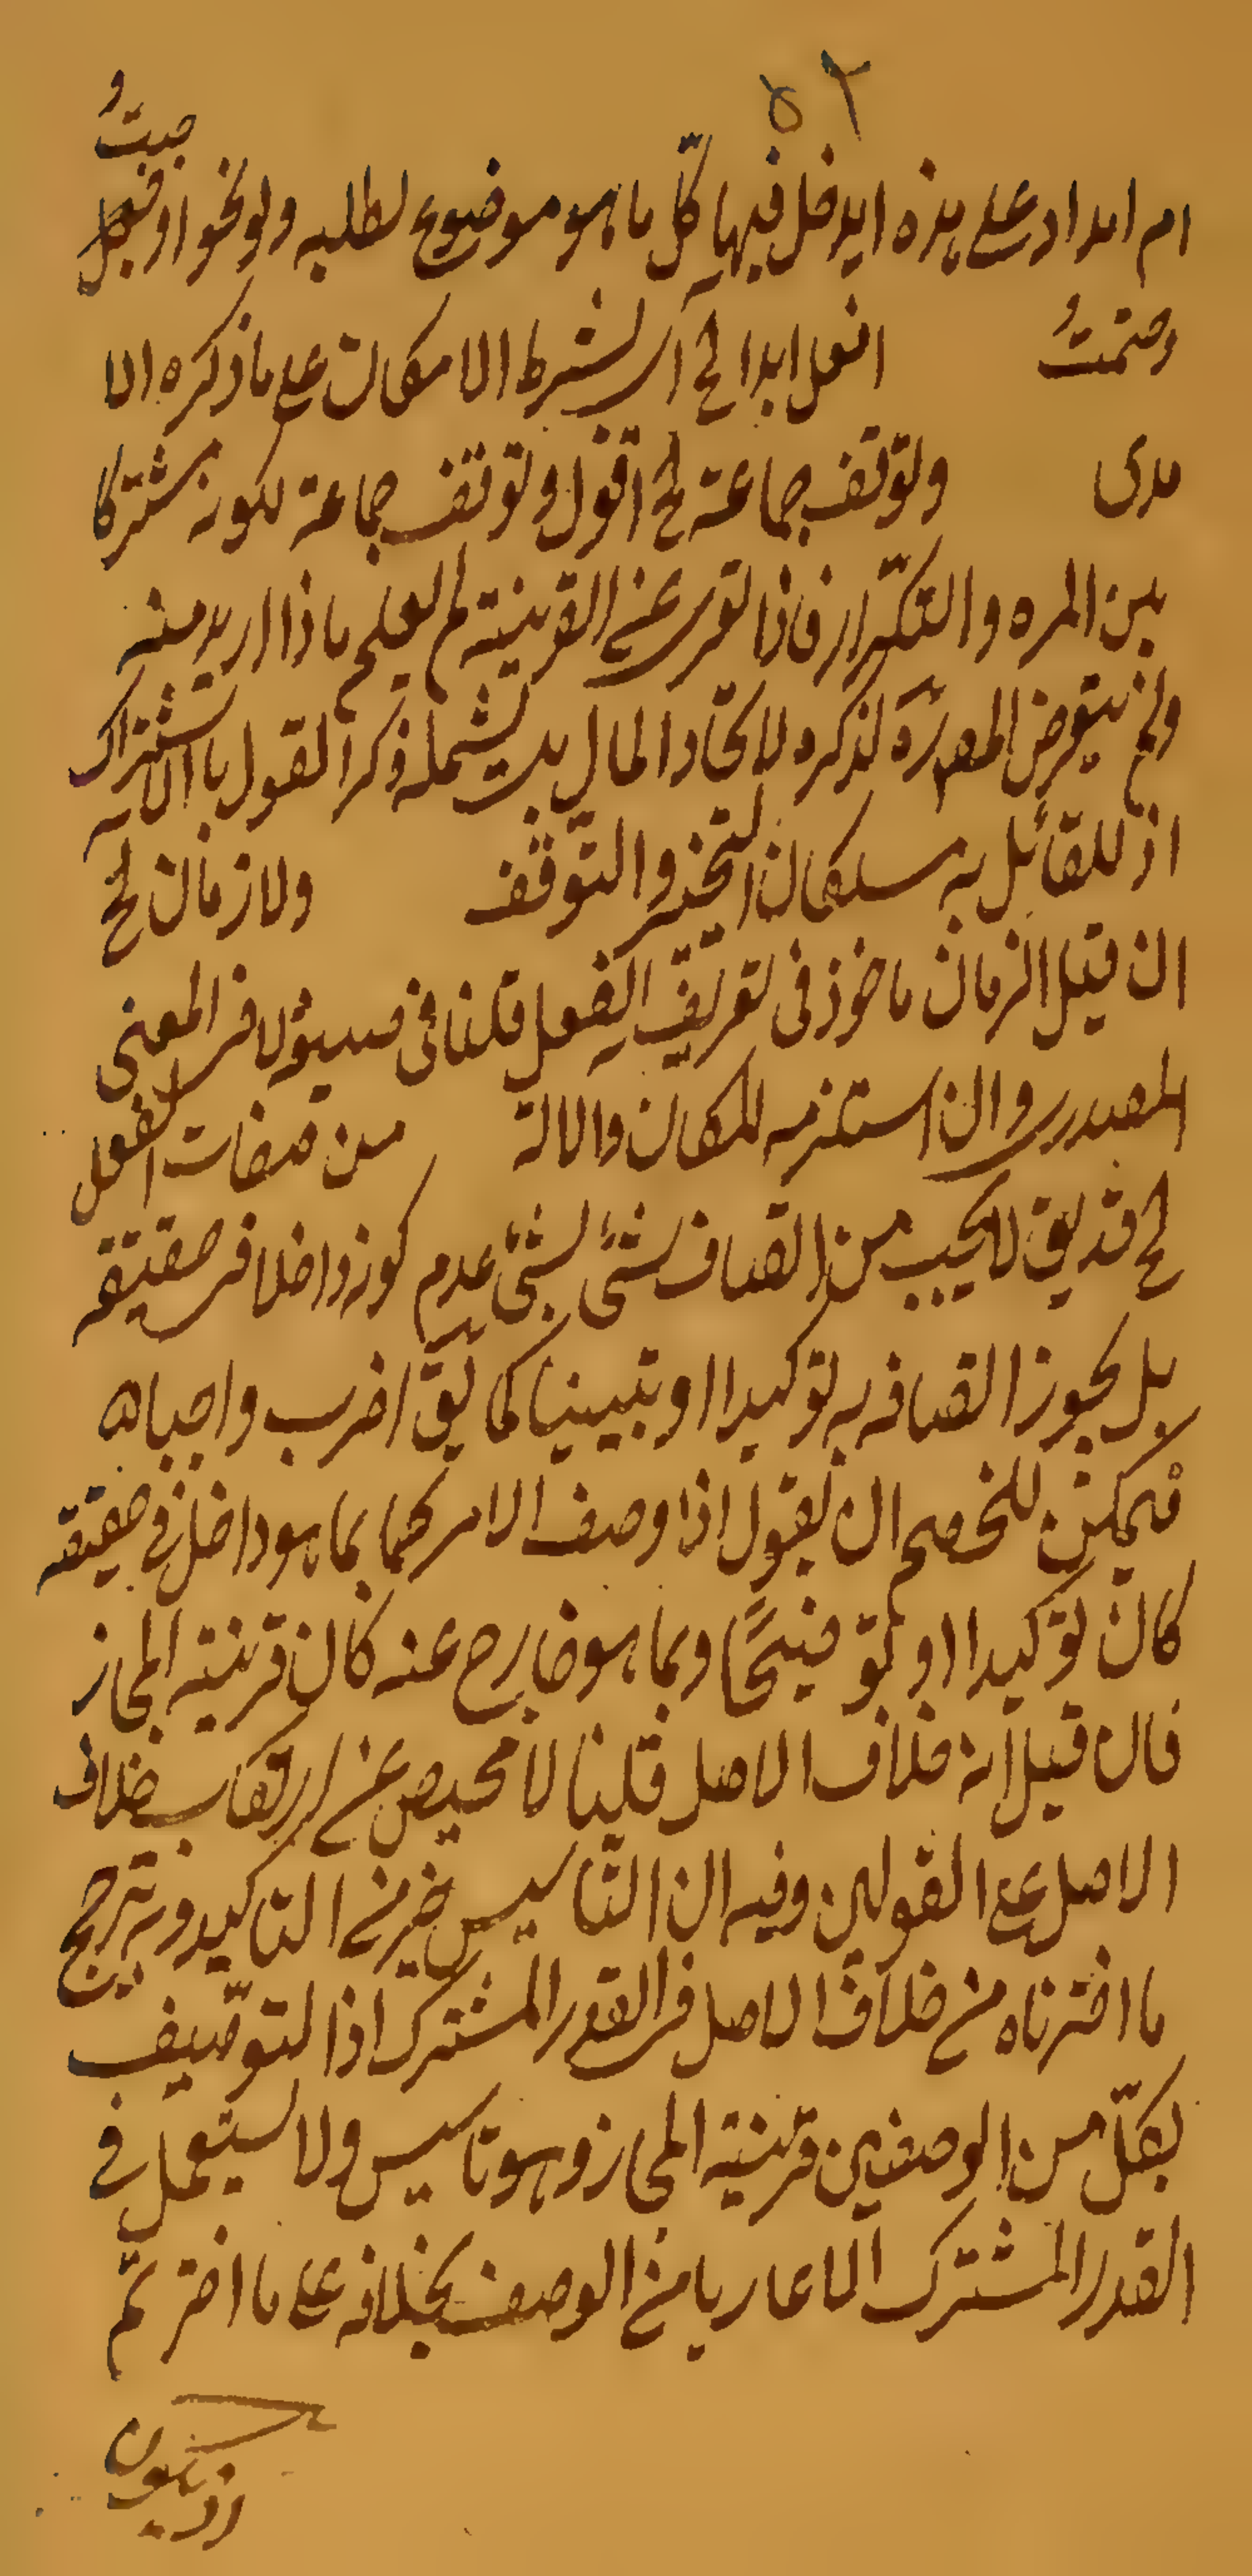 ٥٢
ام امداد على هذه ايدخل فيها كلّ ما هو موضوع لطلبه ولو نحو اوجبتُ
وحتمتُ افعل ابدا الخ اى لشرط الامكان على ما ذكره الا
مدى ولتوقف جماعة الخ اقول وتوقف جماعة لكونه مشتركا
بين المره والتكرّار فاذا تعرى عن القرينة لم يعلم ماذا اريد منه
ولم يتعرض المصره لذكره لاتحاد المال بل يشمله ذكر القول بالاشتراك
اذ للقائل به مسلكان التخير والتوقف ولا زمان الخ
ان قيل الزمان ماخوذ فى تعريف الفعل قلنا فى مدلوله لا فى المعنى
المصدرى وان استلزمه للمكان والالة من صفات الفعل
الخ قد يق لا يجب من اتصاف شئ بشئ عدم كونه داخلا فى حقيقته
بل يجوز اتصافه به توكيدا او تبيينا كما يق اضرب واجبا اه
فيمكن للخصم ان يقول اذا وصف الامر بهما بما هو داخل في حقيقته
كان توكيدا او توضيحًا وبما هو خارج عنه كان قرينة المجاز
فان قيل انه خلاف الاصل قلنا لا محيص عن ارتكاب خلاف
الاصل على القولين وفيه ان التاسيس خير من التاكيد وبه يترجح
ما اخترناه من خلاف الاصل فى القدر المشترك اذ التوصيف
بكلّ من الوصفين قرينة المجاز وهو تاسيس ولا يستعمل في
القدر المشترك الا عاريا من الوصف بخلافه على ما اخترتم